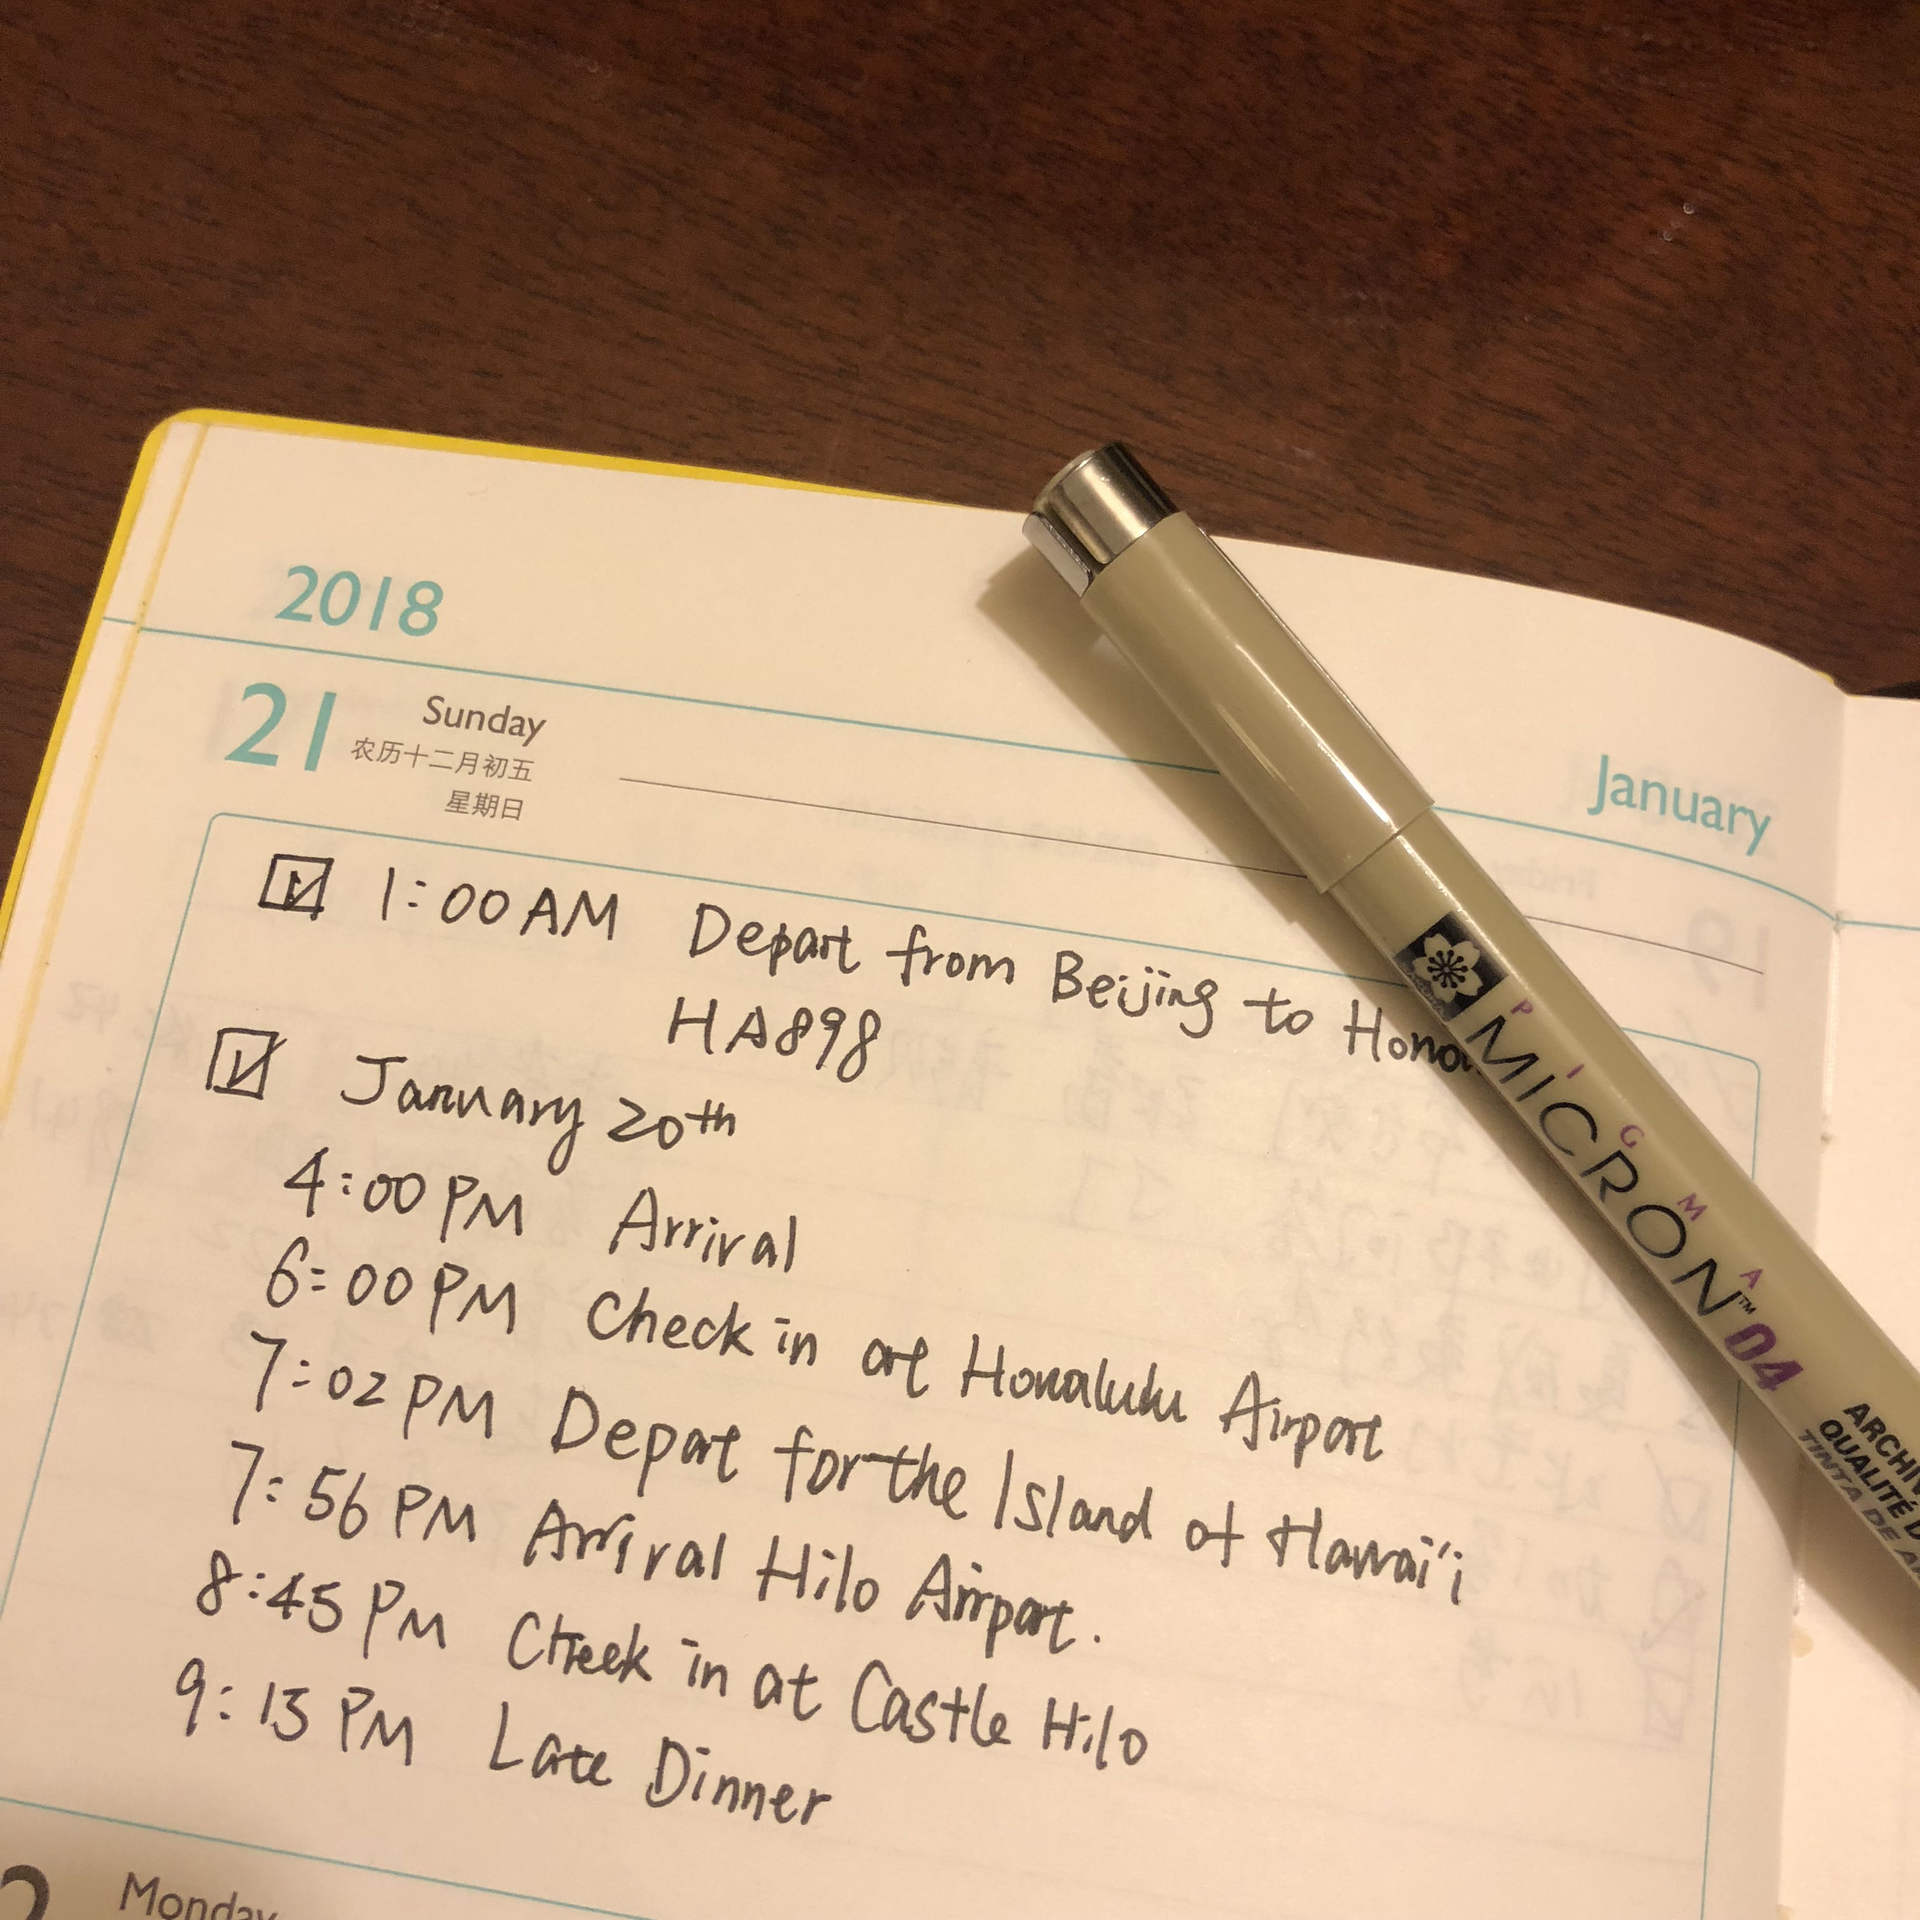 2018
January
21 Sunday
农历十二月初五
星期日
1:00 AM Depart from Beijing to
HA898
January 20th
4:00 PM Arrival
6:00 PM Check in at Honalulu Airport
7:02 PM Depart for the Island of Hawai'i
7:56 PM Arrival Hilo Airport.
8:45 PM Check in at Castle Hilo
9:15 PM Late Dinner
Monday
PIGMA
MICRON™ 04
QUALITÉ
TINTA DE